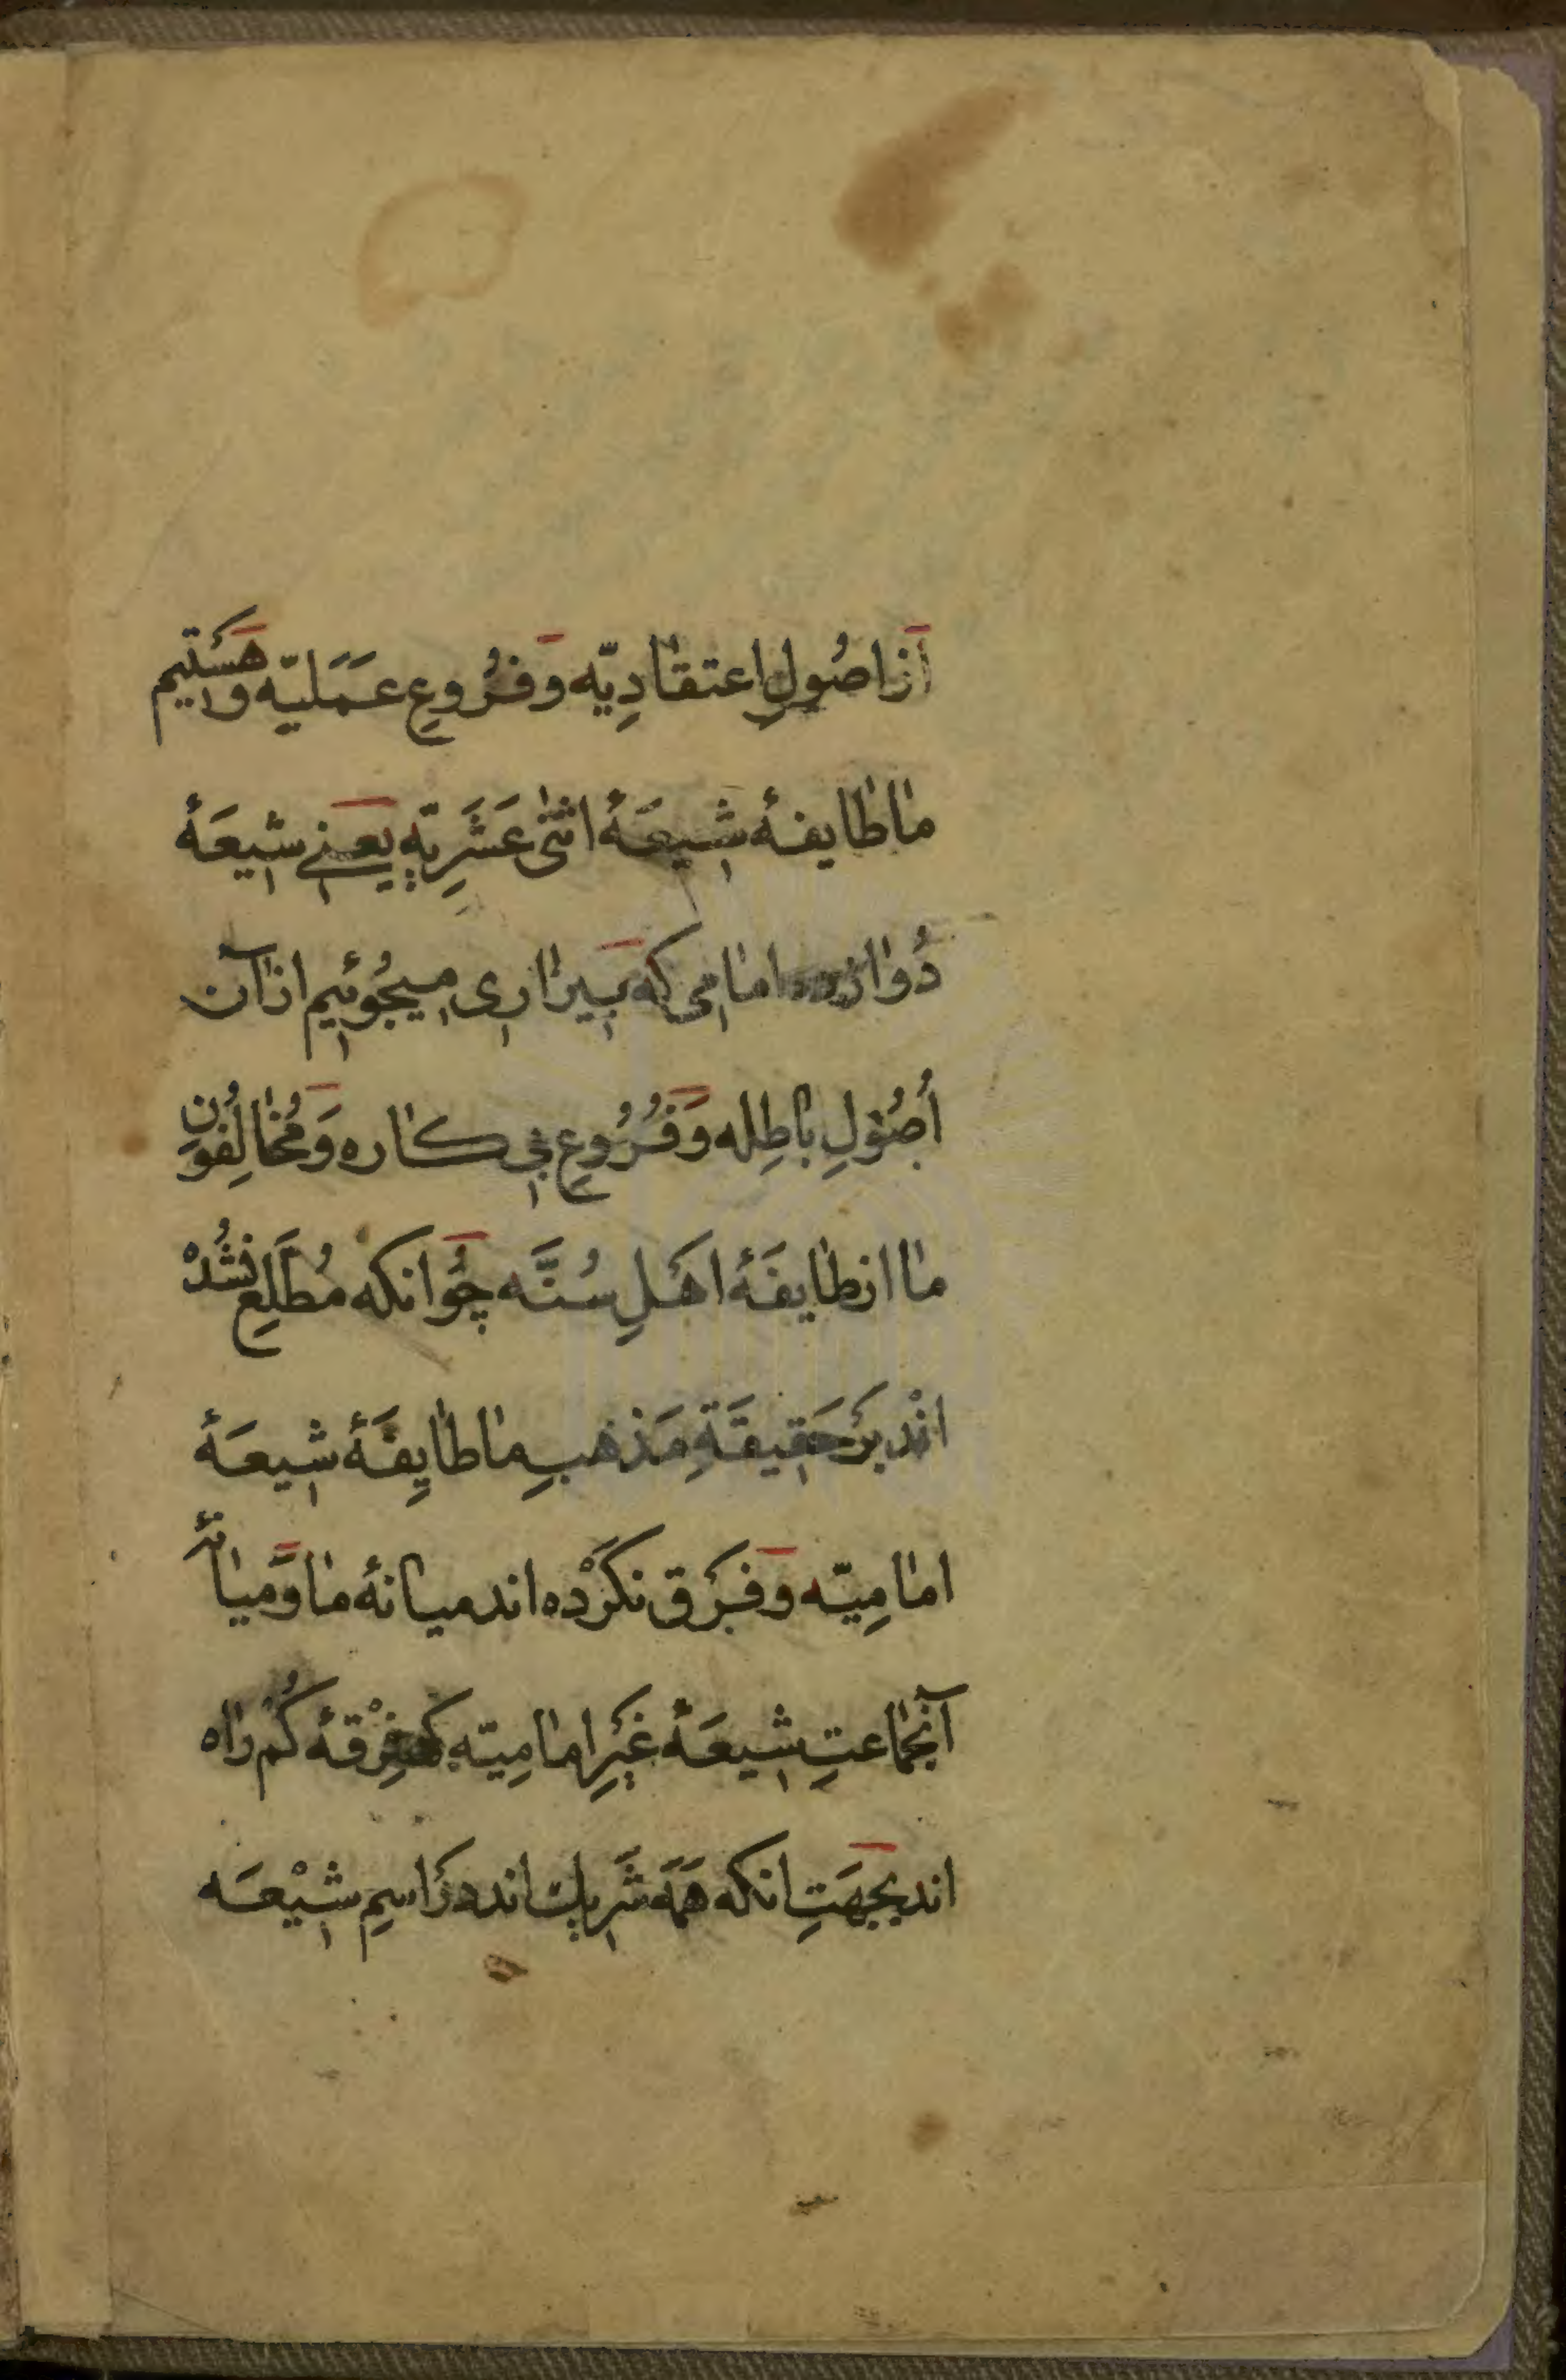 از اصُولِ اعتقادِیّه وَ فرُوعِ عَمَلیّه و هَستیم
ما طایفهٔ شیعَهٔ اثنٰی عَشَرِیّه یَعنی شیعَهٔ
دُوازده امامی که بَیزاری میجُوئیم از آن
اُصُولِ باطِله وَ فُرُوعِ بی کاره وَ مُخالِفُون
ما از طایفَهٔ اهَلِ سُنَّه چُوانکه مُطَّلِع نشُدْ
انْد بَر حَقیقَةِ مَذهبِ ما طایِفَهٔ شیعَهٔ
امامِیّه وَ فَرق نکَرْده اند میانهٔ ما وَ میانهٔ
آنجماعتِ شیعَهٔ غَیرِ امامِیّه که فِرْقهٔ کُم راه
اند بجهَتِ انکه هَمَه شَرِیك اند دَر اسمِ شیْعَه